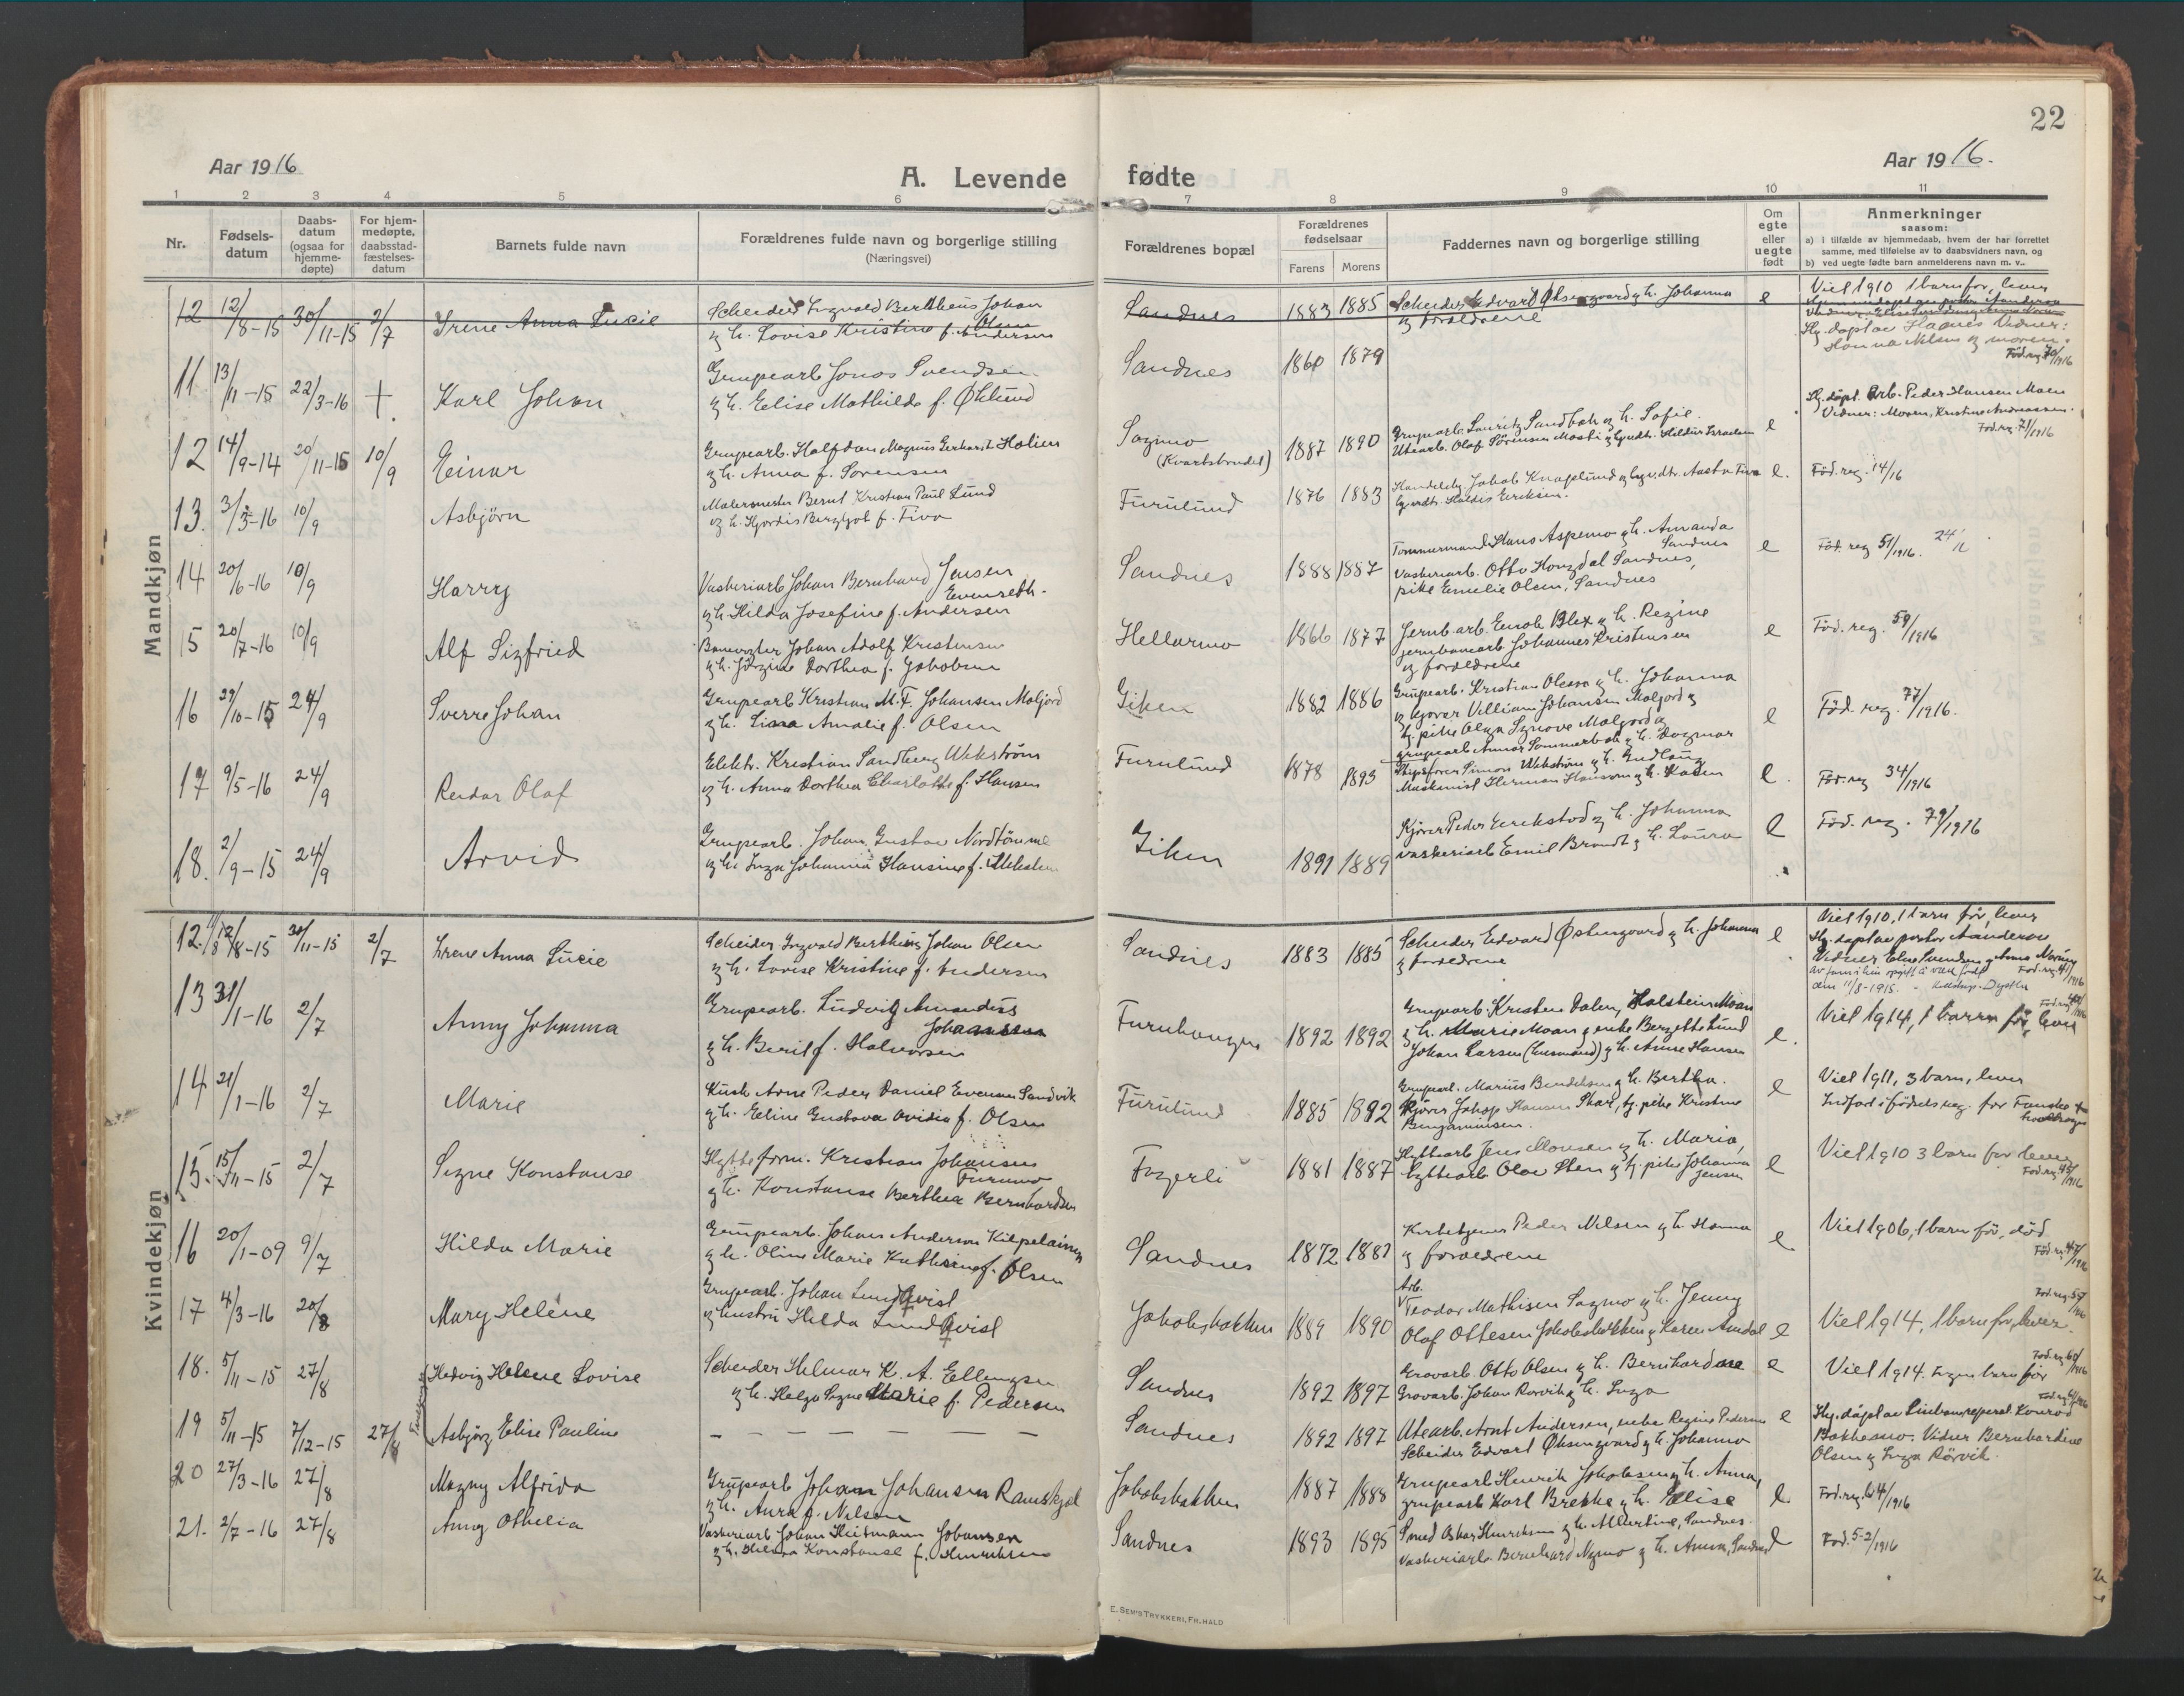 22
Aar 1916
A. Levende fødte
Aar 1916.
1 2 3 4 5 6 7 8 9 10 11
Nr.
Fødsels-
datum
Daabs-
datum
(ogsaa for
hjemme-
døpte)
For hjem-
medøpte,
daabsstad-
fæstelses-
datum
Barnets fulde navn
Forældrenes fulde navn og borgerlige stilling
(Næringsvei)
Forældrenes bopæl
Forældrenes
fødselsaar
Farens Morens
Faddernes navn og borgerlige stilling
Om
egte
eller
uegte
født
Anmerkninger
saasom:
a) i tilfælde av hjemmedaab, hvem der har forrettet
samme, med tilføielse av to daabsvidners navn, og
b) ved uegte fødte barn anmelderens navn m. v..
Mandkjøn
12 12/8-15 30/11-15 2/7 Irene Anna Lucie
Scheider Ingvald Bertheus Johan
Olsen
g h. Lovise Kristine f. Andersen
Sandnes 1883 1885
Scheider Edvard Østensgaard g h. Johanna
og forældrene
e
Viel 1910 1 barn før, lever
11 13/11-15 22/3-16 +. Karl Johan
Grupearb Jonas Svendsen
g h. Elise Mathilde f. Øklund
Sandnes 1860 1879
Hj. døpt av Hagnes Vidner:
Hanna Nilsen og moren.
Fød.reg 70/1916
12 14/9-14 30/11-15 10/9 Einar
Grupearb. Halfdan Magnus Gerhardt Holien
g h. Anna f. Sørensen
Sagmo
(Kvartsbrudet)
1887 1890
Grupearb. Lauritz Sandbak g h. Sofie.
Utearb. Olaf Sørensen Mosti g Hildur Israelsen
e
Hj. døpt. Arb. Peder Hansen Moen
Vidner: Moren, Kristine Andreassen.
Fød.reg. 71/1916
13. 3/3-16 10/9 Asbjørn
Malermester Bernt Kristian Paul Lund
og h. Hjørdis Bergljot f. Tiva
Furulund 1876 1883
Jakob Knaplund
Haldis Eriksen.
e.
Fød. reg. 14/16
14 20/6-16 10/9 Harry
Vaskeriarb Johan Bernhard Jensen
Evenseth.
g h. Hilda Josefine f. Andersen
Sandnes 1888 1887
Tømmermand Hans Aspemo g h. Amanda
Sandnes
Vaskeriarb. Otto Hongdal Sandnes,
pike Emelie Olsen, Sandnes
e
Fød. reg 51/1916.
15 20/7-16 10/9 Alf Sigfried
Banevogter Johan Adolf Kristensen
g h. Jørgine Dorthea f. Jakobsen
Hellarmo 1866 1877
Jernb.arb. Enok Blex g h. Regine
jernbanearb Johannes Kristensen
og forældrene
e
Fød. reg. 59/1916
16 29/10-15 24/9 Sverre Johan
Grupearb Kristian M. F. Johansen Maljord
g h. Liana Amalie f. Olsen
Giken 1882 1886
Grupearb. Kristian Olsen g h. Johanna
og kjører Villiam Johansen Maljord og
grupearb Annar Sommerbak g h. Dagmar
e
Fød. reg. 77/1916.
17 9/5-16 24/9 Reidar Olaf
Elektr. Kristian Sandberg Wekstrøm
og h. Anna Dorthea Charlotte f. Hansen
Furulund 1878 1893
Simon Wekstrøm g h. Gudlaug
Maskinist Herman Hansen g h. Karen
e.
Fød. reg 34/1916
18. 2/9-15 24/9 Arvid
Grupearb. Johan Gustav Nordtømme
g h. Inga Johanna Hansine f.
Giken 1891 1889
Kjører Peder Erikstad og h. Johanna
vaskeriarb Emil Brandt g h. Laura
e
Fød. reg. 79/1916
Kvindekjøn
12. 12/8-15 30/11-15 2/7 Irene Anna Lucie
Scheider Ingvald Bertheus Johan Olsen
g h. Lovise Kristine f. Andersen
Sandnes 1883 1885
Scheider Edvard Østensgaard g h. Johanna
g forældrene
e
Viel 1910, 1 barn før, lever
Hj. døpt av pastor Aanderaa
Vidner Elise Svendsen g Anna Noring
av familien opgitt å være født Fød.reg. 41/1916
den 11/8-1915.
13 31/1-16 2/7 Anny Johanna
Grupearb. Ludvig Amandus
Johannessen
g h. Berit f. Halvorsen
Furuhaugen 1892 1892
Grupearb. Kristen Dalen, Holstein Moan
g h. Marie Moan g enke Bergette Lund
Johan Larsen (husmand) g h. Anne Hansen
e.
Viel 1914, 1 barn før, lever
14 21/1-16 2/7 Marie
Kusk Arne Peder Daniel Evensen Sandvik
g h. Eline Gustava Ovidia f. Olsen
Furulund 1885 1892
Grupearb. Marius Bendiksen g h. Bertha.
Kjører Jakop Hansen Skar, tj. pike Kristine
Benjaminsen.
e
Viel 1911, 3 barn, lever
Indført i fødsels reg. for Fauske
15. 15/11-15 2/7 Signe Konstanse
Hytteform. Kristian Johansen
Furumo
g h. Konstanse Berthea Bernhardsen
Fagerli 1881 1887
Hyttearb Jens Monsen g h. Maria,
hyttearb Olav Sten g tj. pike Johanna
Jensen
e
Viel 1910 3 barn før lever
Fød.reg 45/1916
16 20/1-09 9/7 Hilda Marie
Grupearb. Johan Anderson Kilpelainen
g h. Oline Marie Kathrine f. Olsen
Sandnes 1872 1887
Kirketjener Peder Nilsen g h. Hanna
og forældrene
e.
Viel 1906, 1 barn før, død
Fød.reg 47/1916
17 4/3-16 20/8 Mary Helene
Grupearb. Johan Lundqvist
og hustru Hilda Lundqvist
Jakobsbakken 1889 1890
Arb.
Teodor Mathisen Sagmo g h. Jenny
Olaf Ottesen Jakobsbakken g Karen Amdal
e
Fød.reg. 57/1916
Viel 1914, 1 barn før, lever.
18. 5/11-15 27/8 Hedvig Helene Lovise
Scheider Hilmar K. A. Ellingsen
g h. Helga Signe Marie f. Pedersen
Sandnes 1892 1897
Grovarb. Otto Olsen g h. Bernhardine
Grovarb. Johan Rørvik g h. Inga
e
Fød.reg 60/1916
Viel 1914. Ingen barn før
19 5/11-15 7/12-15 27/8 Asbjørg Elise Pauline
— — — — — —
Sandnes 1892 1897
Utearb. Arnt Andersen, enke Regine Pedersen
Scheider Edvart Østensgaard g h. Johanna
e
Fød.reg 61/1916
Hj. døpt av Linbanereperat. Konrad
Bakkemo. Vidner Bernhardine
Olsen g Inga Rørvik.
20 27/3-16 27/8 Magny Alfrida
Grupearb Johan Johansen Ramskjel
g h. Anna f. Nilsen
Jakobsbakken 1887 1888
Grupearb Henrik Jakobsen g h. Anna,
grupearb Karl Brekke g h. Elise
e.
Fød.reg. 64/1916
21. 2/7-16 27/8 Anny Othelia
Vaskeriarb Johan Heitmann Johansen
g h. Helena Konstanse f. Henriksen
Sandnes 1893 1895
Smed Oskar Henriksen g h. Albertine, Sandnes.
Vaskeriarb. Bernhard Nymo g h. Anna, Sandnes
e
Fød. 52/1916
E. SEM'S TRYKKERI, FR. HALD